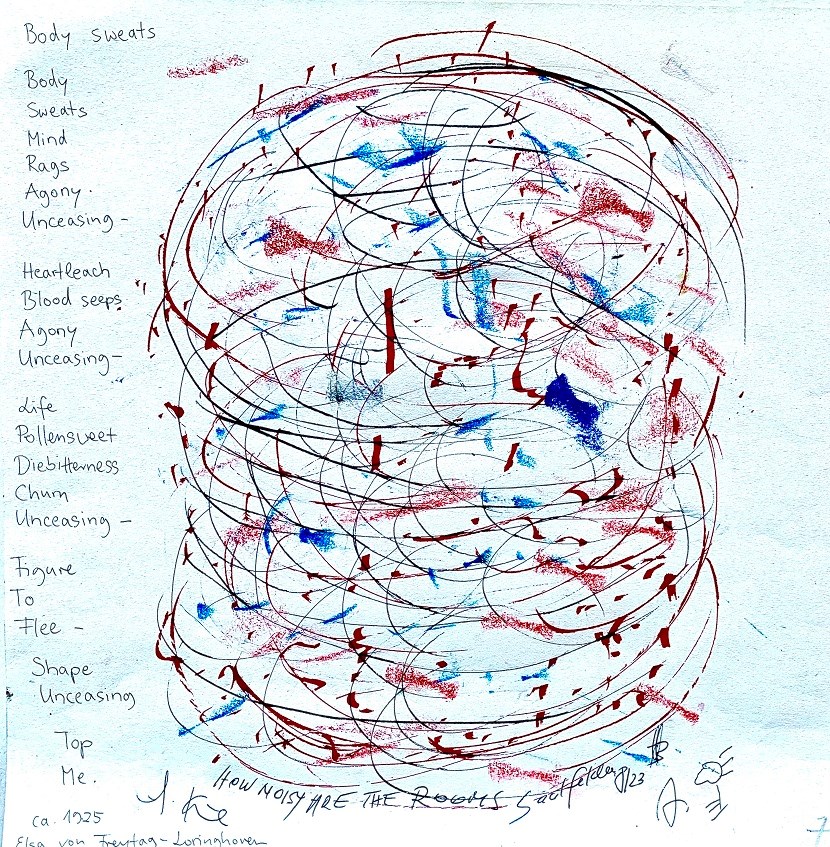 Body sweats
Body
Sweats
Mind
Rags
Agony.
Unceasing -
Heartleach
Blood seeps
Agony
Unceasing -
Life
Pollensweet
Diebitterness
Chum
Unceasing -
Figure
To
Flee -
Shape
Unceasing
Top
Me.
ca. 1925
Elsa von Freytag-Loringhoven
HOW NOISY ARE THE ROOMS
8/23